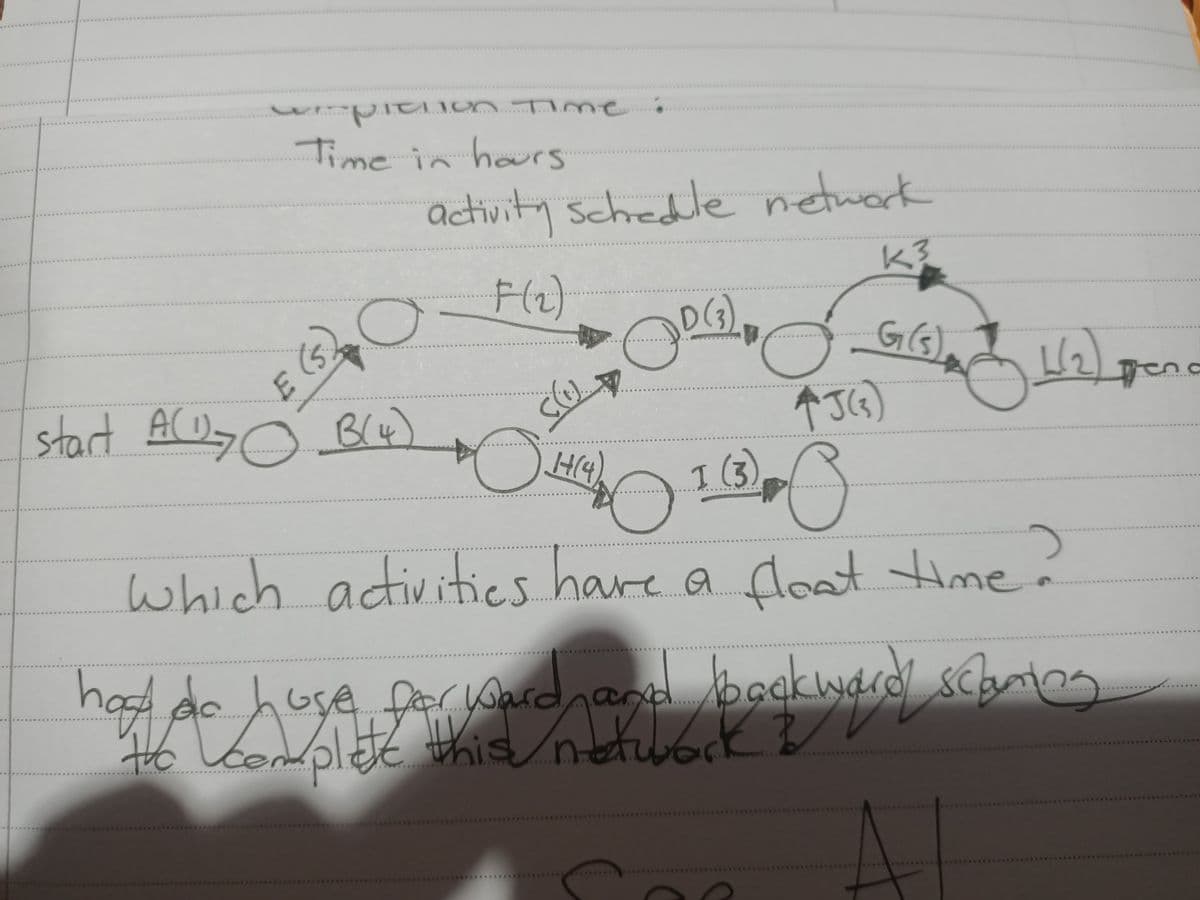 Time :
Time in hours
activity schedule network
K3
F(2)
D(3)
G(5)
L(2)
E (5)
C(1)
J(3)
start A(1)
B(4)
H(4)
I (3)
Which activities have a float time?
do use forward and backward
complete this network ?